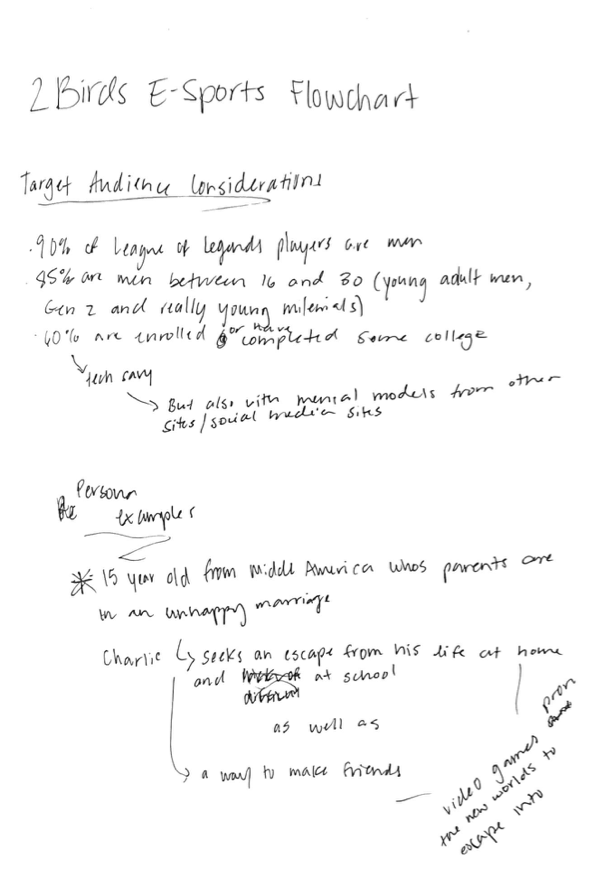 2 Birds E-Sports Flowchart
Target Audience Considerations
· 90% of League of Legends players are men
· 85% are men between 16 and 30 (young adult men,
Gen Z and really young milenials)
· 60% are enrolled or have completed some college
tech savy
But also with mental models from other
sites/social media sites
Persona
examples
* 15 year old from Middle America whos parents are
in an unhappy marriage
Charlie ↳ seeks an escape from his life at home
and at school
as well as
a way to make friends
video games
the new worlds to
escape into